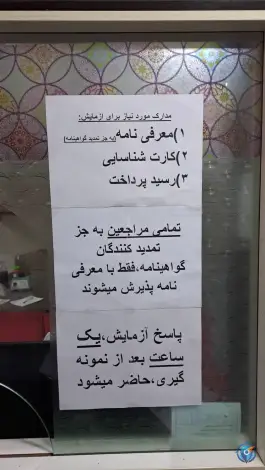 مدارک مورد نیاز برای ازمایش:
۱)معرفی نامه(به جز تمدید گواهینامه)
۲)کارت شناسایی
۳)رسید پرداخت
تمامی مراجعین به جز
تمدید کنندگان
گواهینامه،فقط با معرفی
نامه پذیرش میشوند
پاسخ آزمایش،یک
ساعت بعد از نمونه
گیری،حاضر میشود